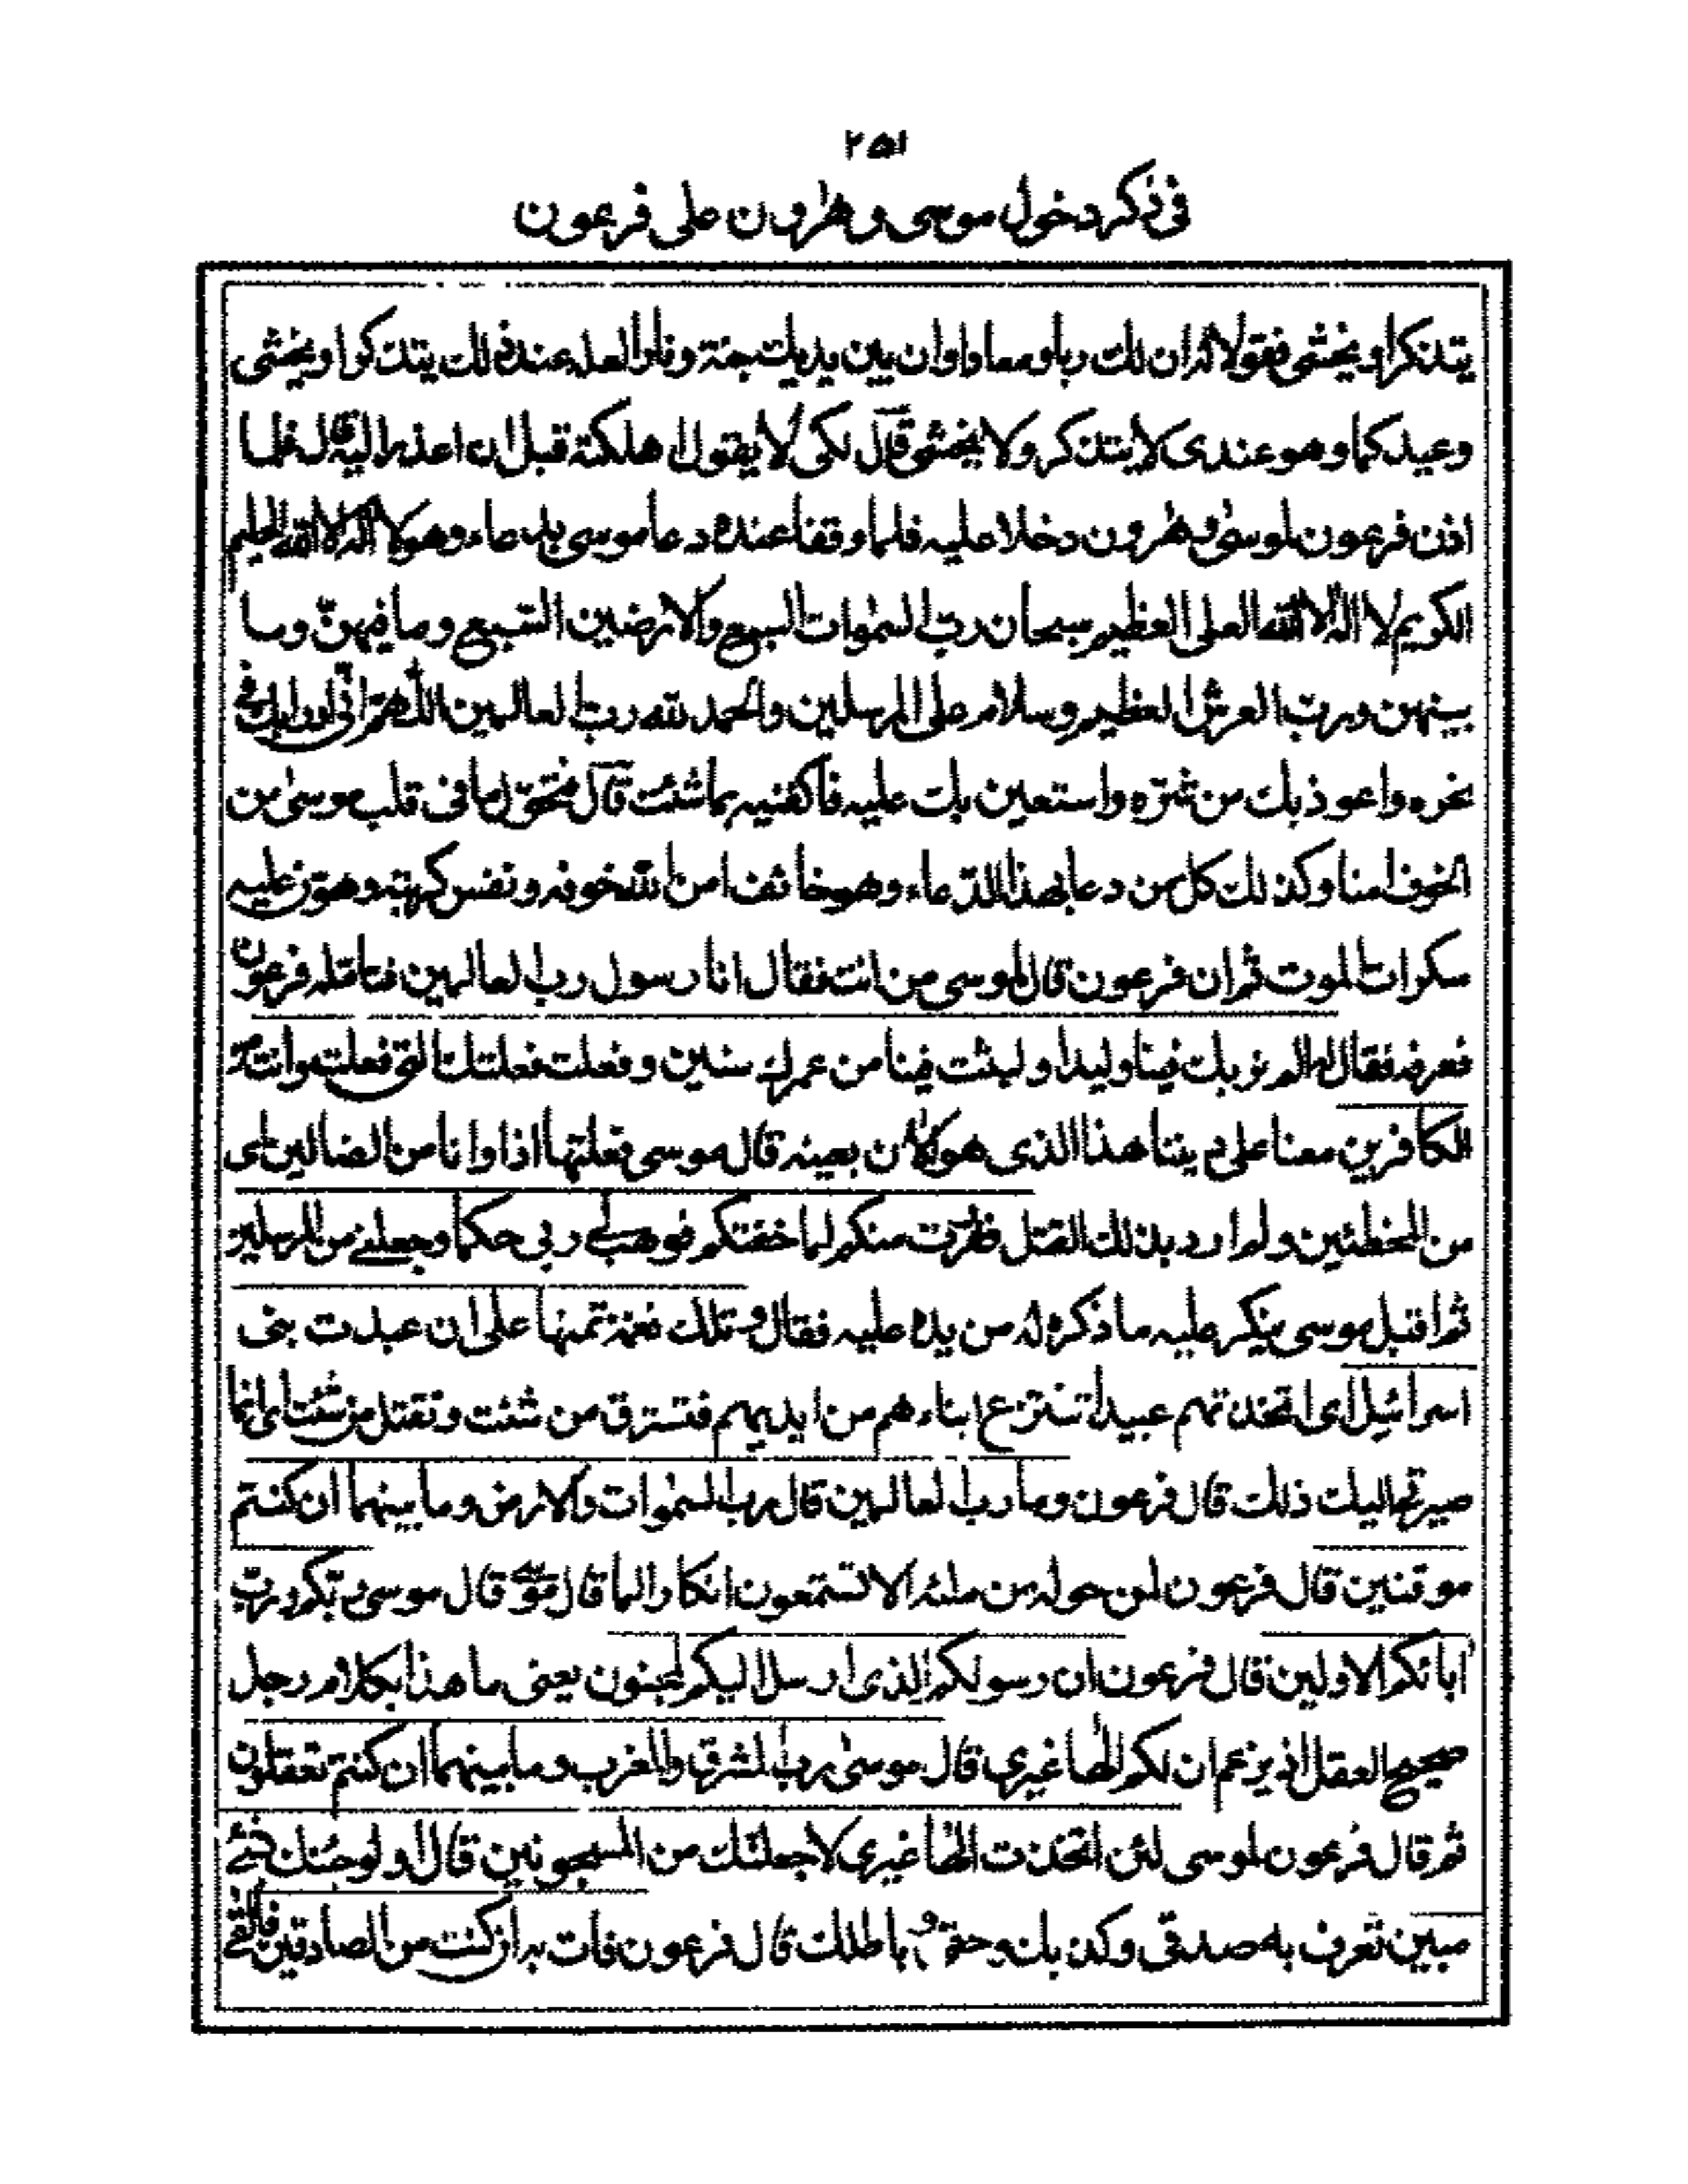 ٢٥١
فی ذکر دخول موسی و هٰرون علی فرعون
یتذکر او یخشی فقولا له ان لك ربا و معادا و ان بین یدیك جنة و نارا لعله عند ذلك یتذکر او یخشی
وعید کما و هو عندی لا یتذکر و لا یخشی قال لکی لا یقول اهلکته قبل ان اعذر الیه قال فلما
اذن فرعون لموسیٰ و هٰرون دخلا علیه فلما وقفا عنده دعا موسی بدعاء و هو لا اله الا الله الحلیم
الکریم لا اله الا الله العلی العظیم سبحان رب السمٰوات السبع و الارضین السبع و ما فیهنّ و ما
بینهن و رب العرش العظیم و سلام علی المرسلین و الحمد لله رب العالمین اللهم انّی ادرابك فی
نحره و اعوذ بك من شرّه و استعین بك علیه فاکفنیه بما شئت قال فتحوّل ما فی قلب موسیٰ من
الخوف امنا و کذلك کل من دعا بهذا الدّعاء و هو خائف امن الله خوفه و نفس کربته و هوّن علیه
سکرات الموت ثم ان فرعون قال لموسی من انت فقال انا رسول رب العالمین فتامّله فرعون
فعرفه فقال له الم نربك فینا ولیدا و لبثت فینا من عمرك سنین و فعلت فعلتك التی فعلت و انت من
الکافرین معنا علی دیننا هذا الذی هو الان بعینه قال موسی فعلتها اذا و انا من الضالین ای
من المخطئین و لم ارد بذلك القتل ففررت منکم لما خفتکم فوهب لی ربی حکما و جعلنی من المرسلین
ثم اقبل موسی ینکر علیه ما ذکره له من یده علیه فقال و تلك نعمة تمنها علی ان عبدت بنی
اسرائیل ای اتخذتهم عبیدا تنتزع ابناءهم من ایدیهم فتسترق من شئت و تقتل من شئت ای انما
صیرنی الیك ذلك قال فرعون و ما رب العالمین قال رب السمٰوات و الارض و ما بینهما ان کنتم
موقنین قال فرعون لمن حوله من ملئه الا تستمعون انکارا لما قال موسی قال موسی ربکم و رب
ابائکم الاولین قال فرعون ان رسولکم الذی ارسل الیکم لمجنون یعنی ما هذا بکلام رجل
صحیح العقل اذ یزعم ان لکم الٰها غیری قال موسیٰ رب المشرق و المغرب و ما بینهما ان کنتم تعقلون
ثم قال فرعون لموسی لئن اتخذت الٰها غیری لاجعلنك من المسجونین قال او لو جئتك بشئ
مبین تعرف به صدقی و کذبك و حقی و باطلك قال فرعون فات به ان کنت من الصادقین فالقی